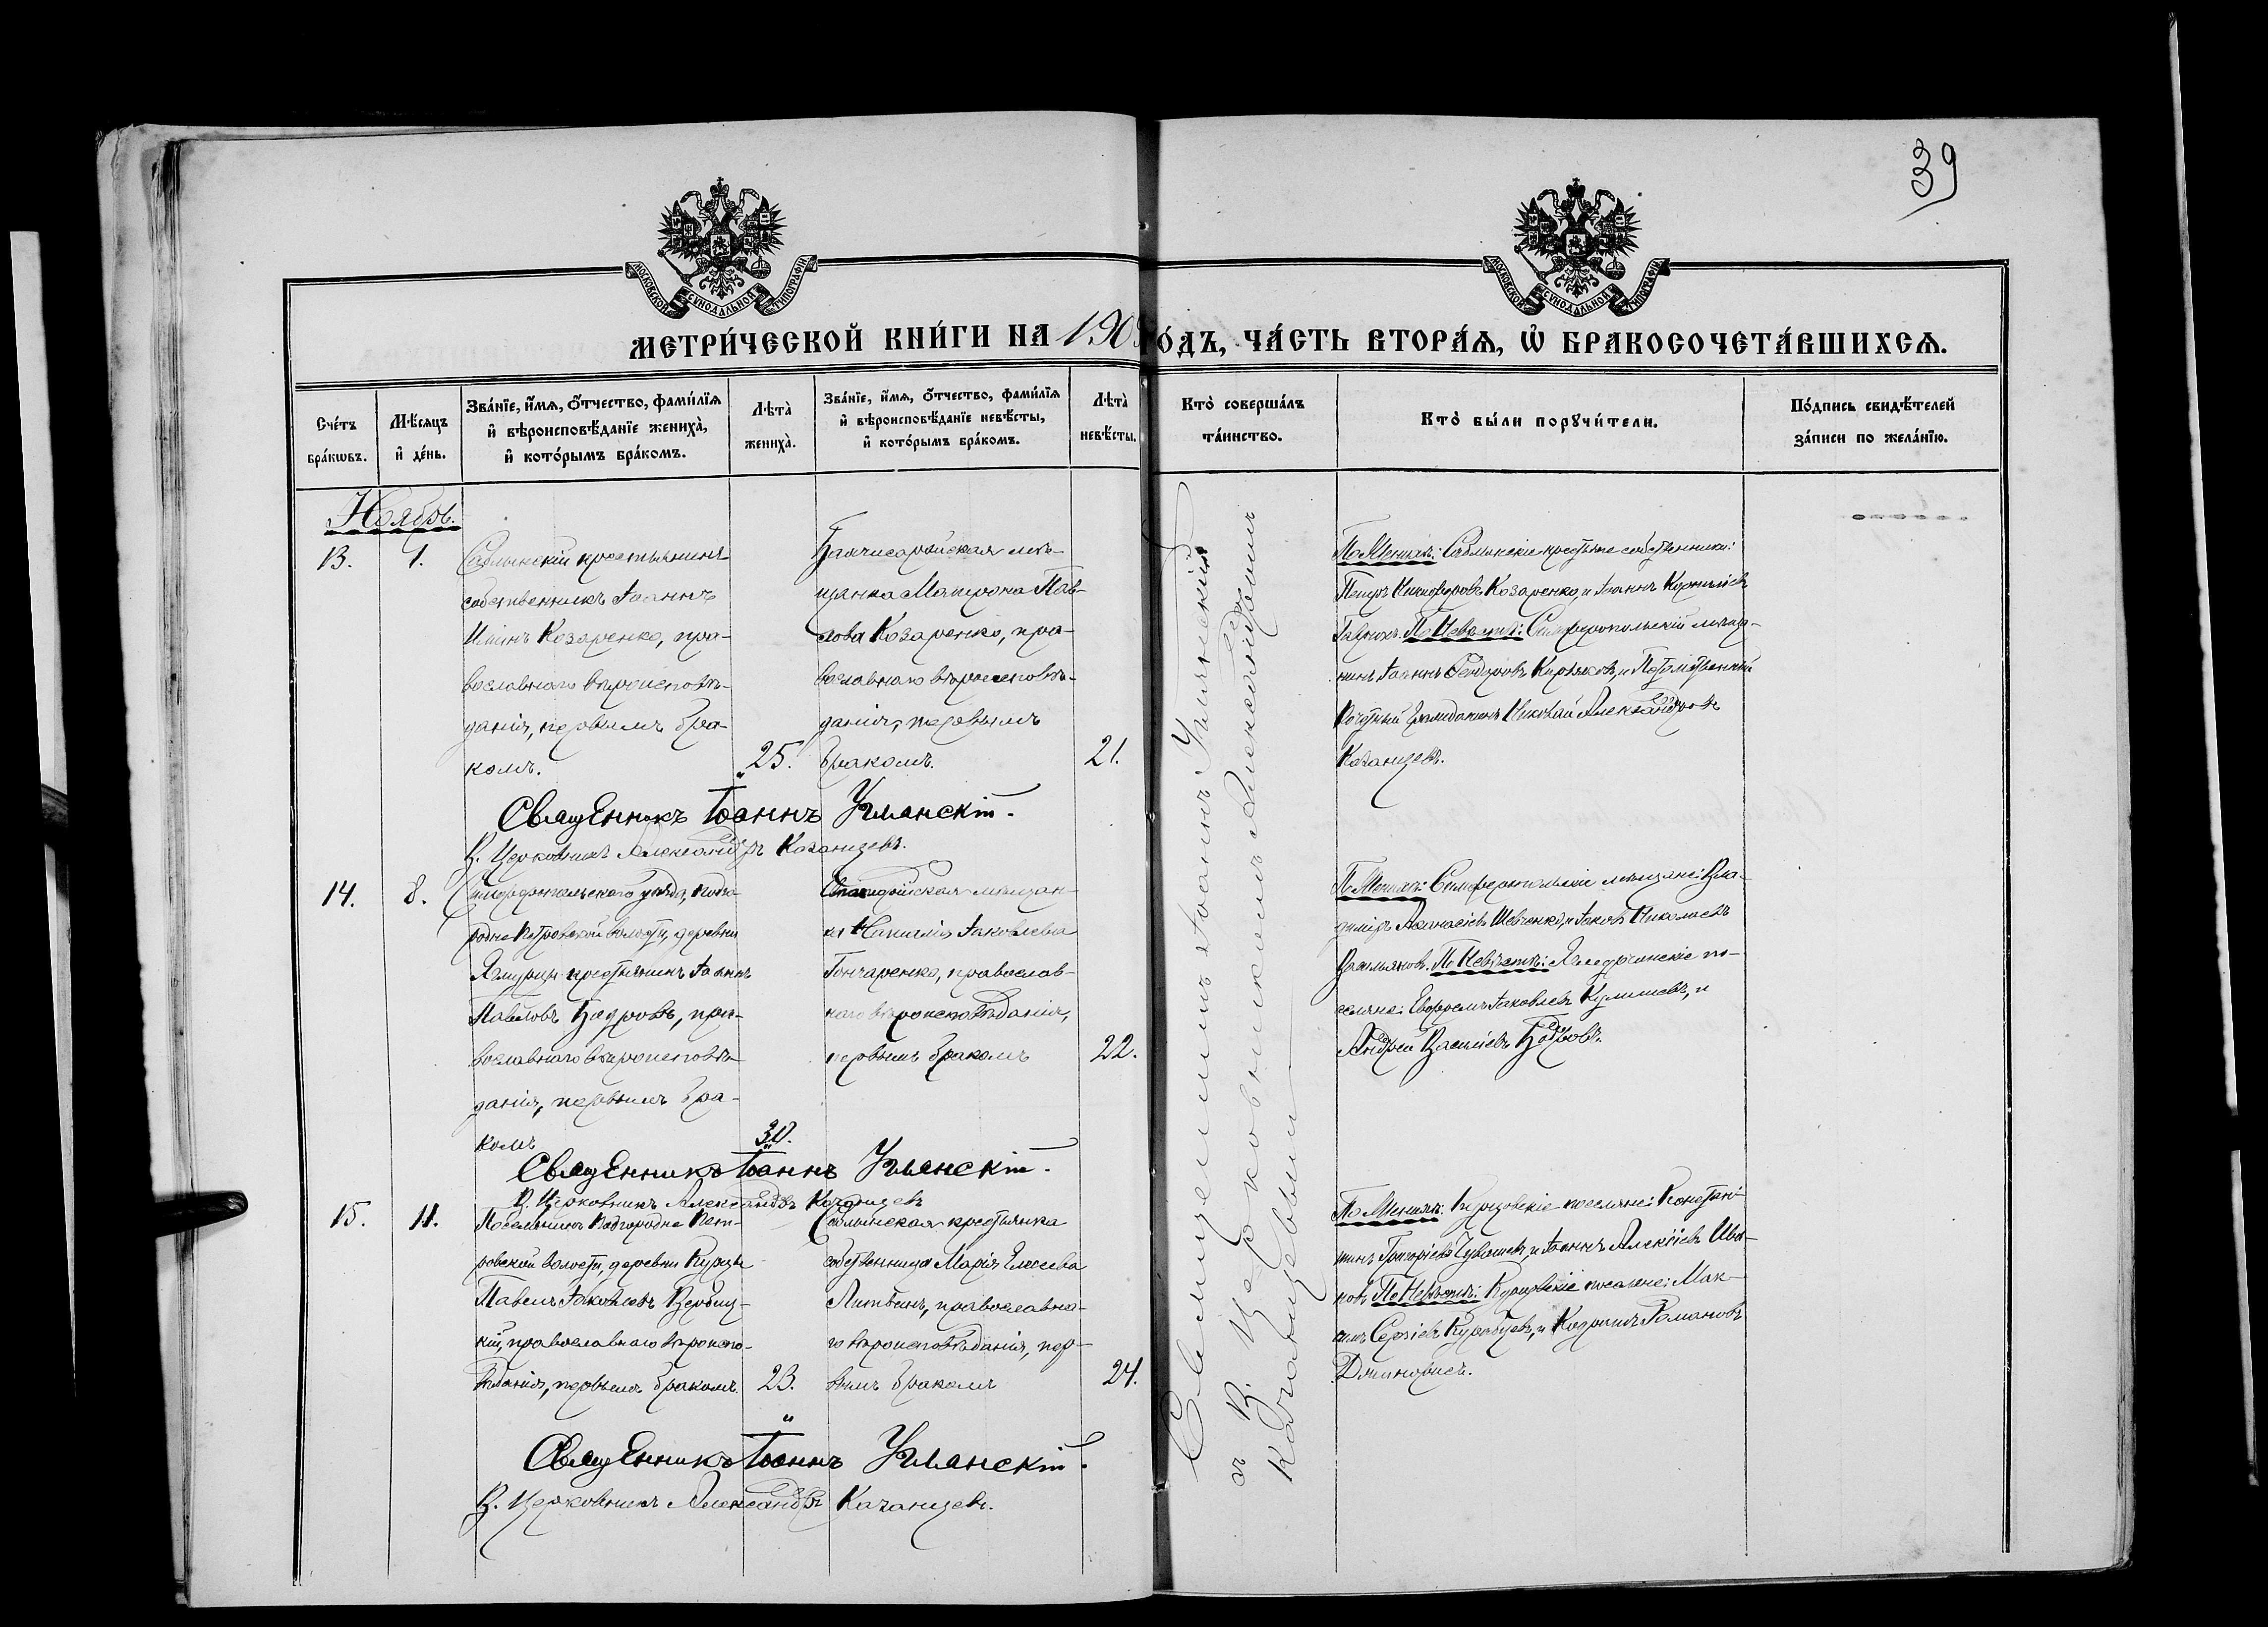 39
МОСКОВСКОЙ СѴНОДАЛЬНОЙ ТИПОГРАФІИ
МОСКОВСКОЙ СѴНОДАЛЬНОЙ ТИПОГРАФІИ
МЕТРИ́ЧЕСКОЙ КНИ́ГИ НА 190 О́ДЪ, ЧА́СТЬ ВТОРА́Ѧ, Ѡ҆ БРАКОСОЧЕТА́ВШИХСѦ.
Сче́тъ бра́кѡвъ.
Мѣ́сяцъ и҆ де́нь.
Зва́нїе, и҆́мѧ, ѻ҆́тчество, фами́лїѧ
и҆ вѣроисповѣ́данїе жениха̀,
и҆ кото́рымъ бра́комъ.
Лѣта̀
жениха̀.
Зва́нїе, и҆́мѧ, ѻ҆́тчество, фами́лїѧ
и҆ вѣроисповѣ́данїе невѣ́сты,
и҆ кото́рымъ бра́комъ.
Лѣта̀
невѣ́сты.
Кто̀ соверша́лъ
та́инство.
Кто̀ бы́ли порꙋчи́тели.
По́дпись свидѣ́телей
за́писи по жела́нїю.
Ноябрь.
13. 1.
Саблынскій крестьянинъ
собственникъ Іоаннъ
Козаренко, пра-
вославнаго вѣроисповѣ-
данія, первымъ бра-
комъ. 25.
Бахчисарайская мѣ-
щанка Матрона Пав-
лова Козаренко, пра-
вославнаго вѣроисповѣ-
данія, первымъ
бракомъ. 21.
По Женихѣ: Саблынскіе крестьяне собственники:
Петръ Никифоровъ Козаренко, и Іоаннъ
По Невѣстѣ: Симферопольскій мѣща-
нинъ Іоаннъ Феодоровъ и Потомственный
Почетный Гражданинъ Николай Александровъ
Качанцевъ.
Священникъ Іоаннъ Углянскій.
В. Церковникъ Александръ Качанцевъ.
14. 8.
Симферопольскаго уѣзда, Подго-
родне Петровской волости, деревни
крестьянинъ Іоаннъ
Павловъ Бодровъ, пра-
вославнаго вѣроисповѣ-
данія, первымъ бра-
комъ 30.
мѣщан-
ка Наталія Іаковлева
Гончаренко, православ-
наго вѣроисповѣданія,
первымъ бракомъ 22.
По Женихѣ: Симферопольскіе мѣщане: Вла-
диміръ Аѳанасіевъ Шевченко, и Іаковъ Николаевъ
По Невѣстѣ: по-
селяне: Евфремъ Іаковлевъ и
Андрей Василіевъ Бодровъ.
Священникъ Іоаннъ Углянскій.
В. Церковникъ Александръ Качанцевъ
15. 11.
Поселянинъ Подгородне Пет-
ровской волости, деревни Курцы
Павелъ Іаковлевъ Вербиц-
кій, православнаго вѣроиспо-
вѣданія, первымъ бракомъ. 23.
Саблынская крестьянка
собственница Марія Елисеева
Литвинъ, православна-
го вѣроисповѣданія, пер-
вымъ бракомъ 24.
По Женихѣ: Курцовскіе поселяне: Констан-
тинъ Григоріевъ Чувашевъ, и Іоаннъ Алексіевъ Ива-
новъ По Невѣстѣ: Курцовскіе поселяне: Мак-
симъ Сергіевъ и Кодратъ Романовъ
Священникъ Іоаннъ Углянскій.
В. Церковникъ Александръ Качанцевъ.
Священникъ Іоаннъ Углянскій
съ В. Церковникомъ Александромъ
Качанцевымъ